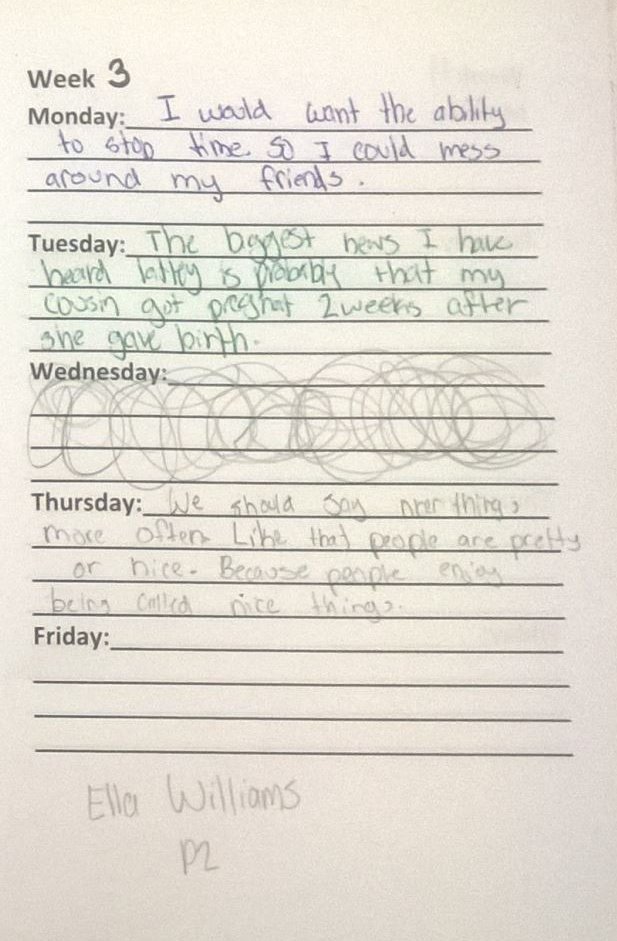 Week 3
Monday: I would want the ability
to stop time. So I could mess
around my friends.
Tuesday: The biggest news I have
heard latley is probably that my
cousin got pregnat 2 weeks after
she gave birth.
Wednesday:
Thursday: We should say nicer things
more often. Like that people are pretty
or nice. Because people enjoy
being called nice things.
Friday:
Ella Williams
P2